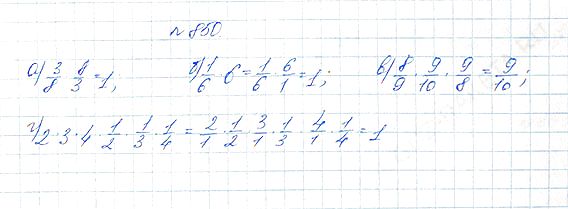 №850.
а) 3/8 · 8/3 = 1; б) 1/6 · 6 = 1/6 · 6/1 = 1; в) 8/9 · 9/10 · 9/8 = 9/10;
г) 2 · 3 · 4 · 1/2 · 1/3 · 1/4 = 2/1 · 1/2 · 3/1 · 1/3 · 4/1 · 1/4 = 1